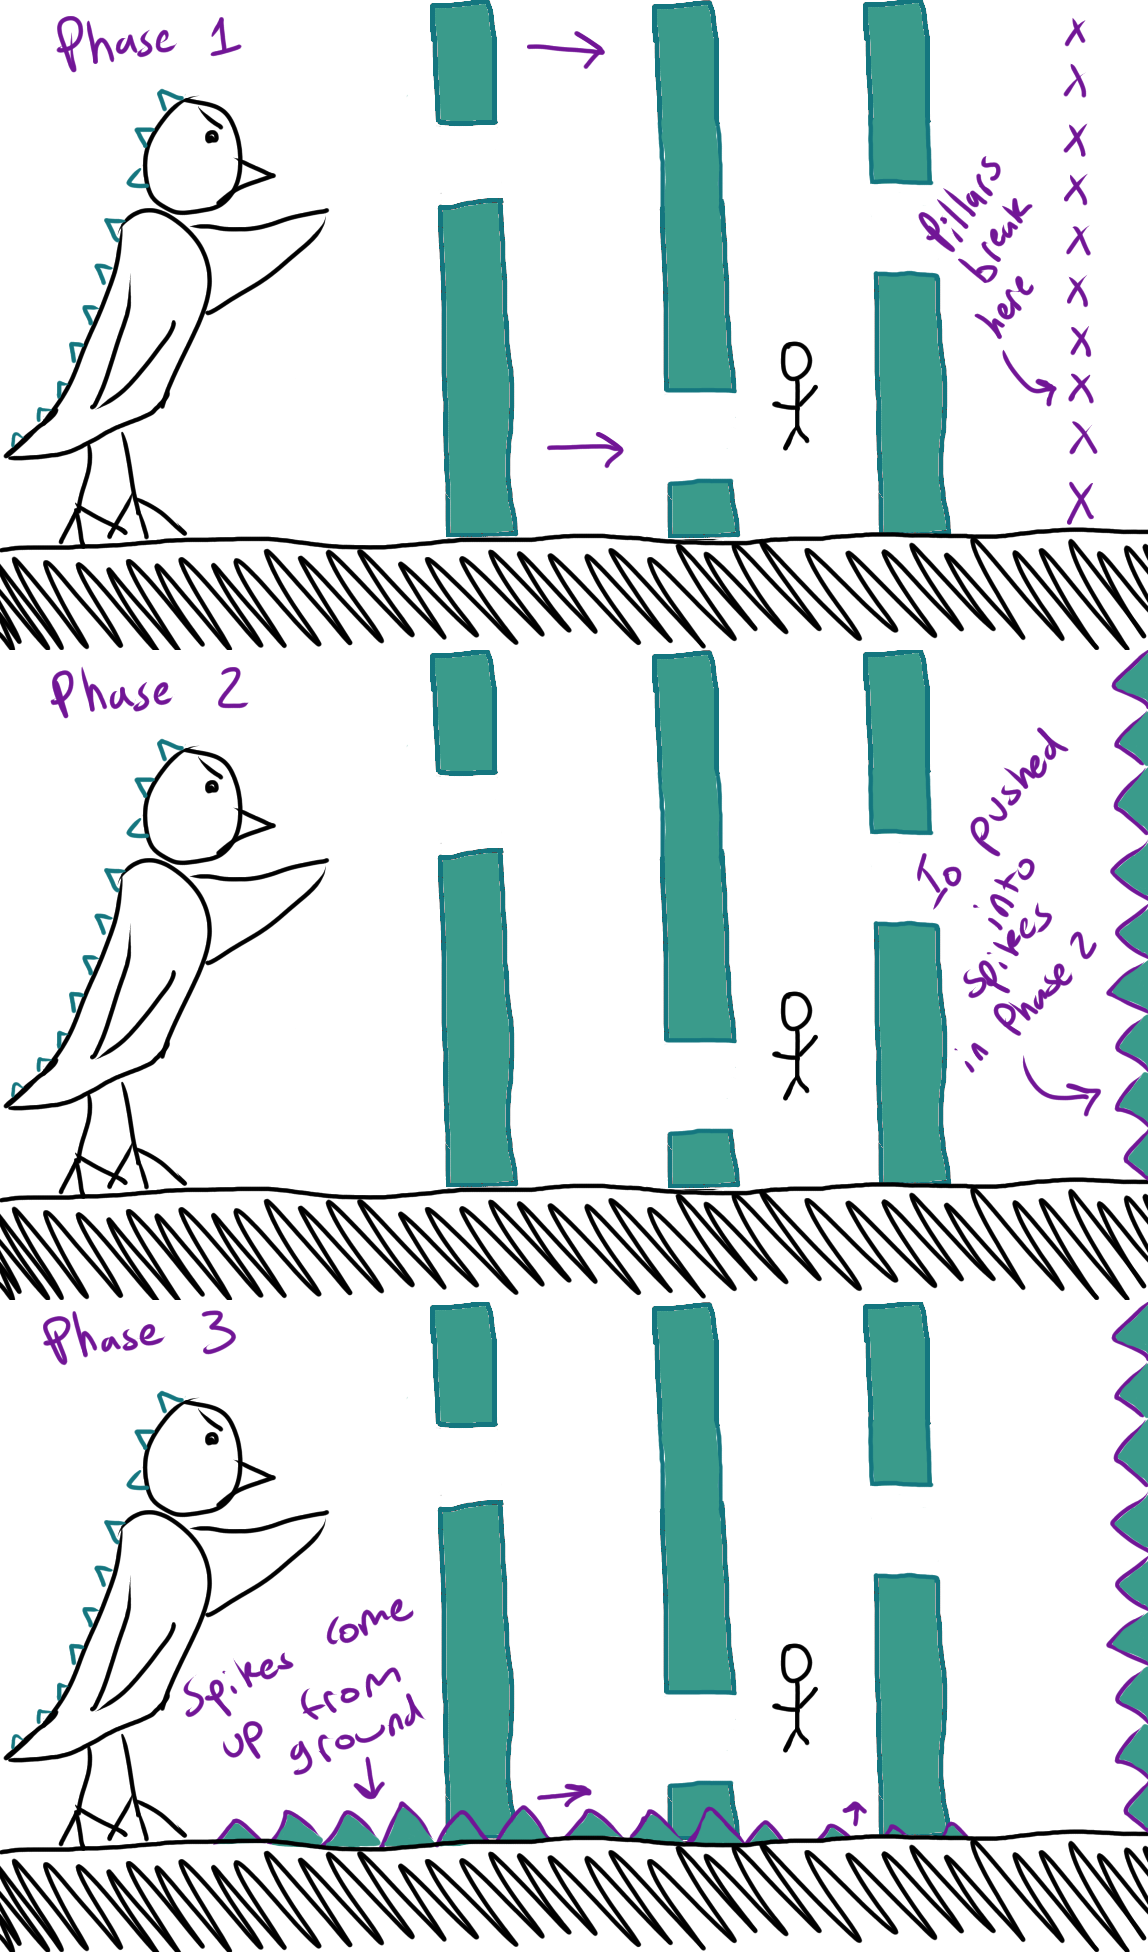 Phase 1
Pillars
break
here
x
x
x
x
x
x
x
x
x
x
Phase 2
Io pushed
into
spikes
in Phase 2
Phase 3
Spikes come
up from
ground